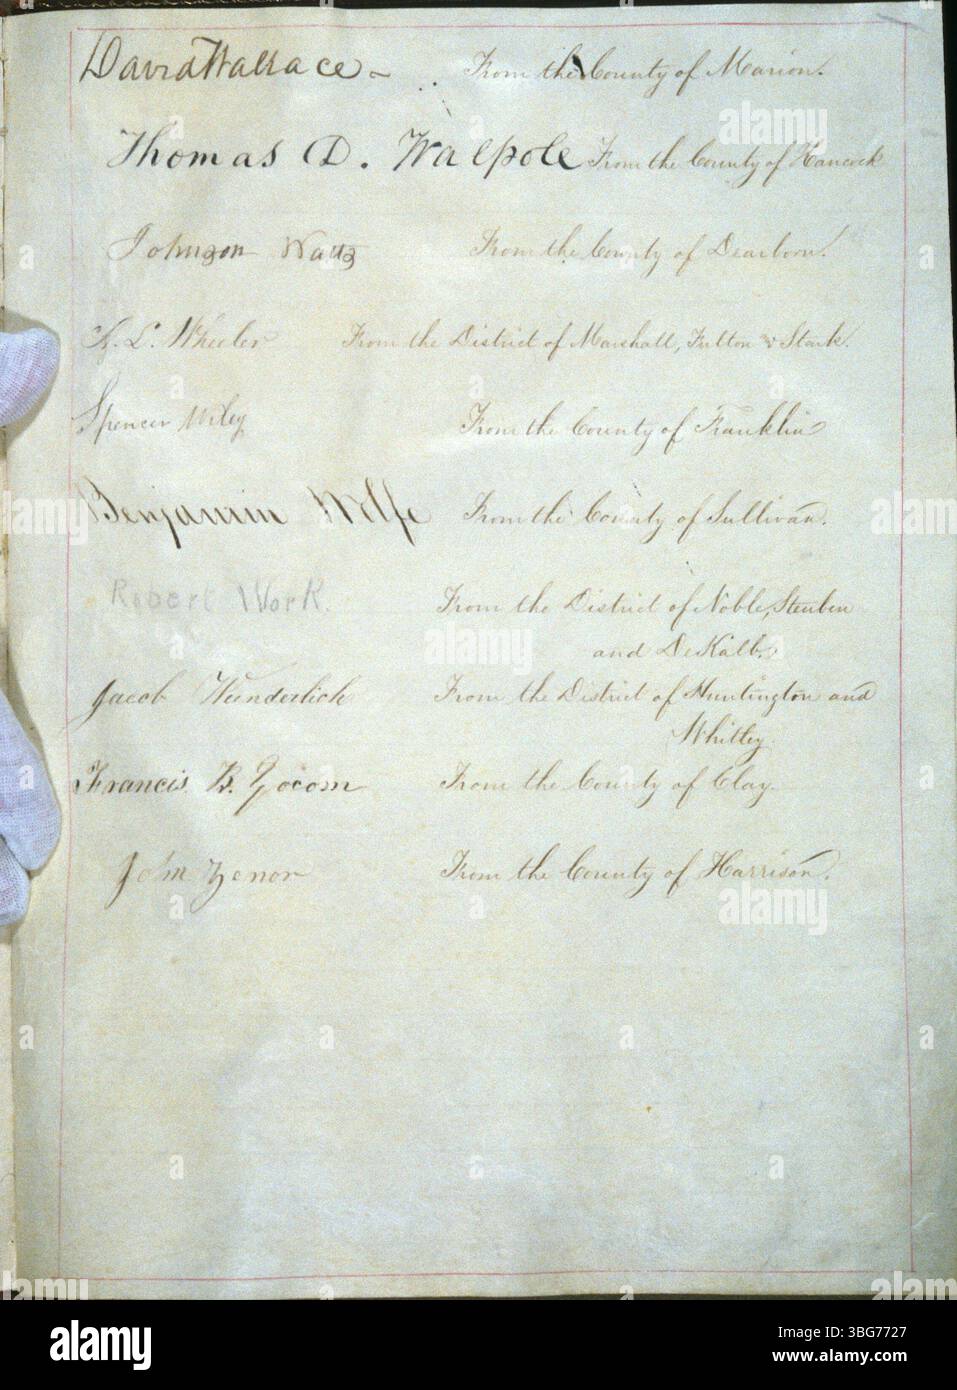 David Wallace From the County of Marion.
Thomas D. Walpole From the County of Hancock
Johnson Watts From the County of Dearborn.
A. L. Wheeler From the District of Marshall, Fulton & Stark.
Spencer Wiley From the County of Franklin
Benjamin Wolfe From the County of Sullivan.
Robert Work. From the District of Noble, Steuben
and DeKalb.
Jacob Wunderlich From the District of Huntington and
Whitley.
Francis B. Yocom From the County of Clay.
John Zenor From the County of Harrison.
alamy
a
alamy
Image ID: 3BG7727
www.alamy.com